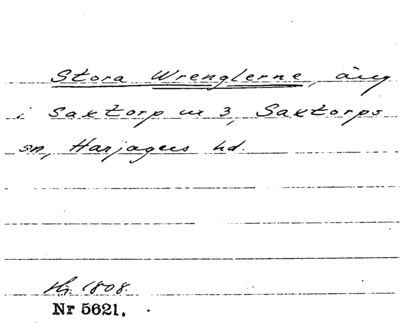 Stora Wrenglerne, äng
i Saxtorp nr 3, Saxtorps
sn, Harjagers hd.
Hy. 1808.
Nr 5621.